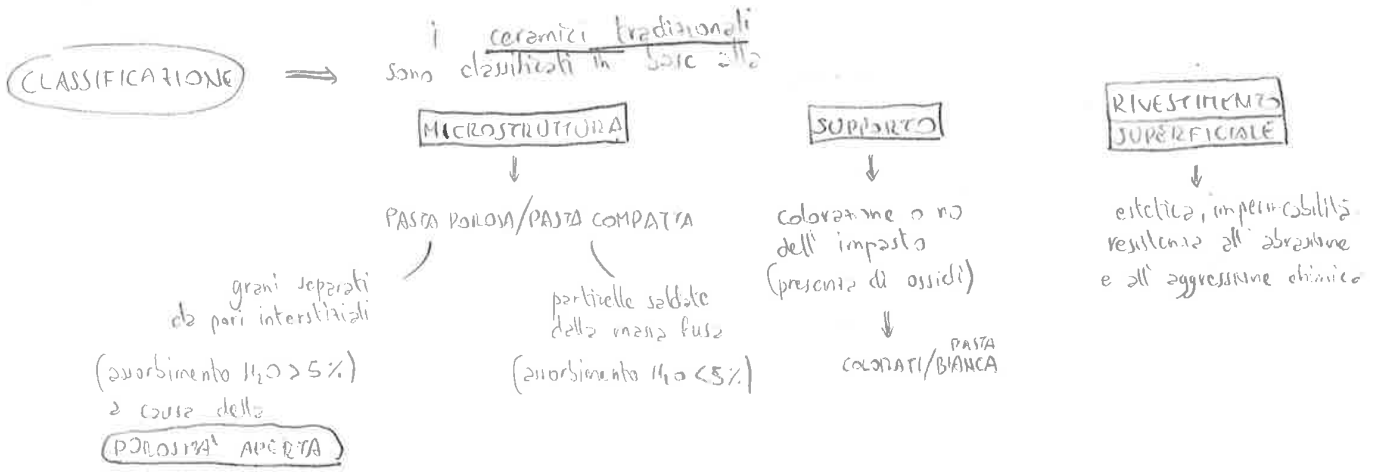 CLASSIFICAZIONE ⇒ i ceramici tradizionali
sono classificati in base alla
MICROSTRUTTURA
PASTA POROSA/PASTA COMPATTA
grani separati
da pori interstiziali
(assorbimento H₂O > 5%)
a causa della
POROSITA' APERTA
particelle saldate
dalla massa fusa
(assorbimento H₂O < 5%)
SUPPORTO
colorazione o no
dell' impasto
(presenza di ossidi)
PASTA
COLORATI/BIANCA
RIVESTIMENTO
SUPERFICIALE
estetica, impermeabilità
resistenza all' abrasione
e all' aggressione chimica